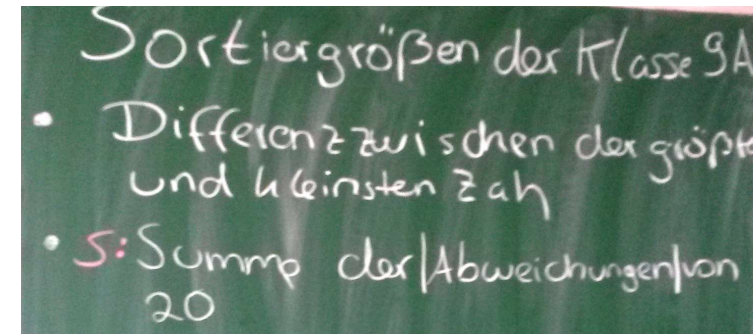 Sortiergrößen der Klasse 9A
• Differenz zwischen der größte
und kleinsten Zah
• S: Summe der |Abweichungen| von
20